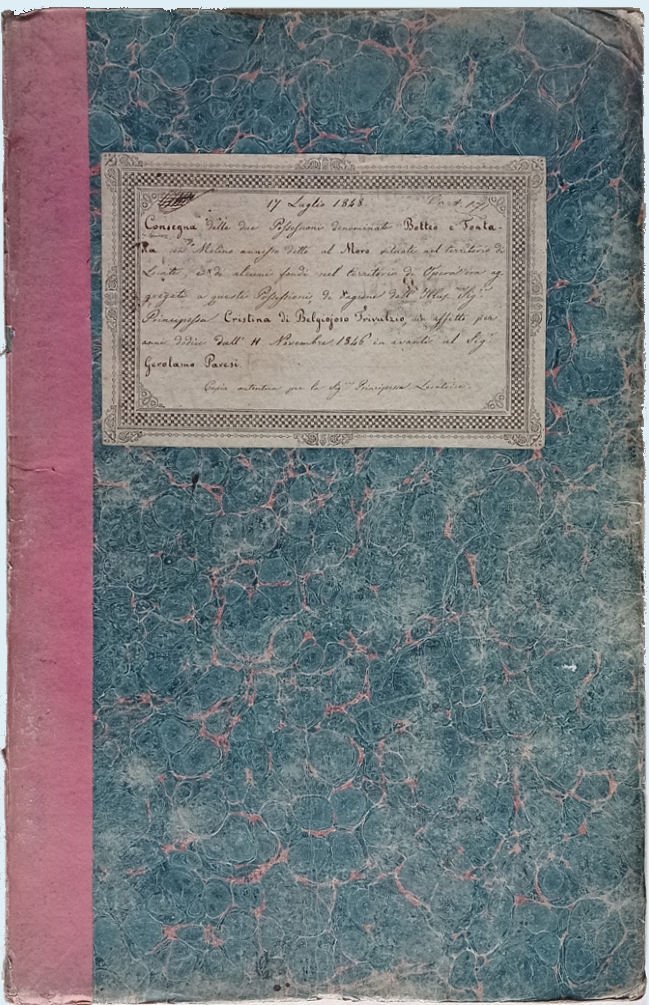 17 Luglio 1848.
Consegna delle due Possessioni denominate Bottio e Fonta
na con Molino annesso detto al Moro situate nel territorio di
e di alcuni fondi nel territorio di Opera ag
gregati a queste Possessioni, di ragione dell' Illus. Sig.
Principessa Cristina di Belgiojoso Trivulzio, in affitto per
anni dodici dall' 11 Novembre 1846 in avanti al Sig.
Gerolamo Pavesi.
Copia autentica per la Sig. Principessa Locatrice.